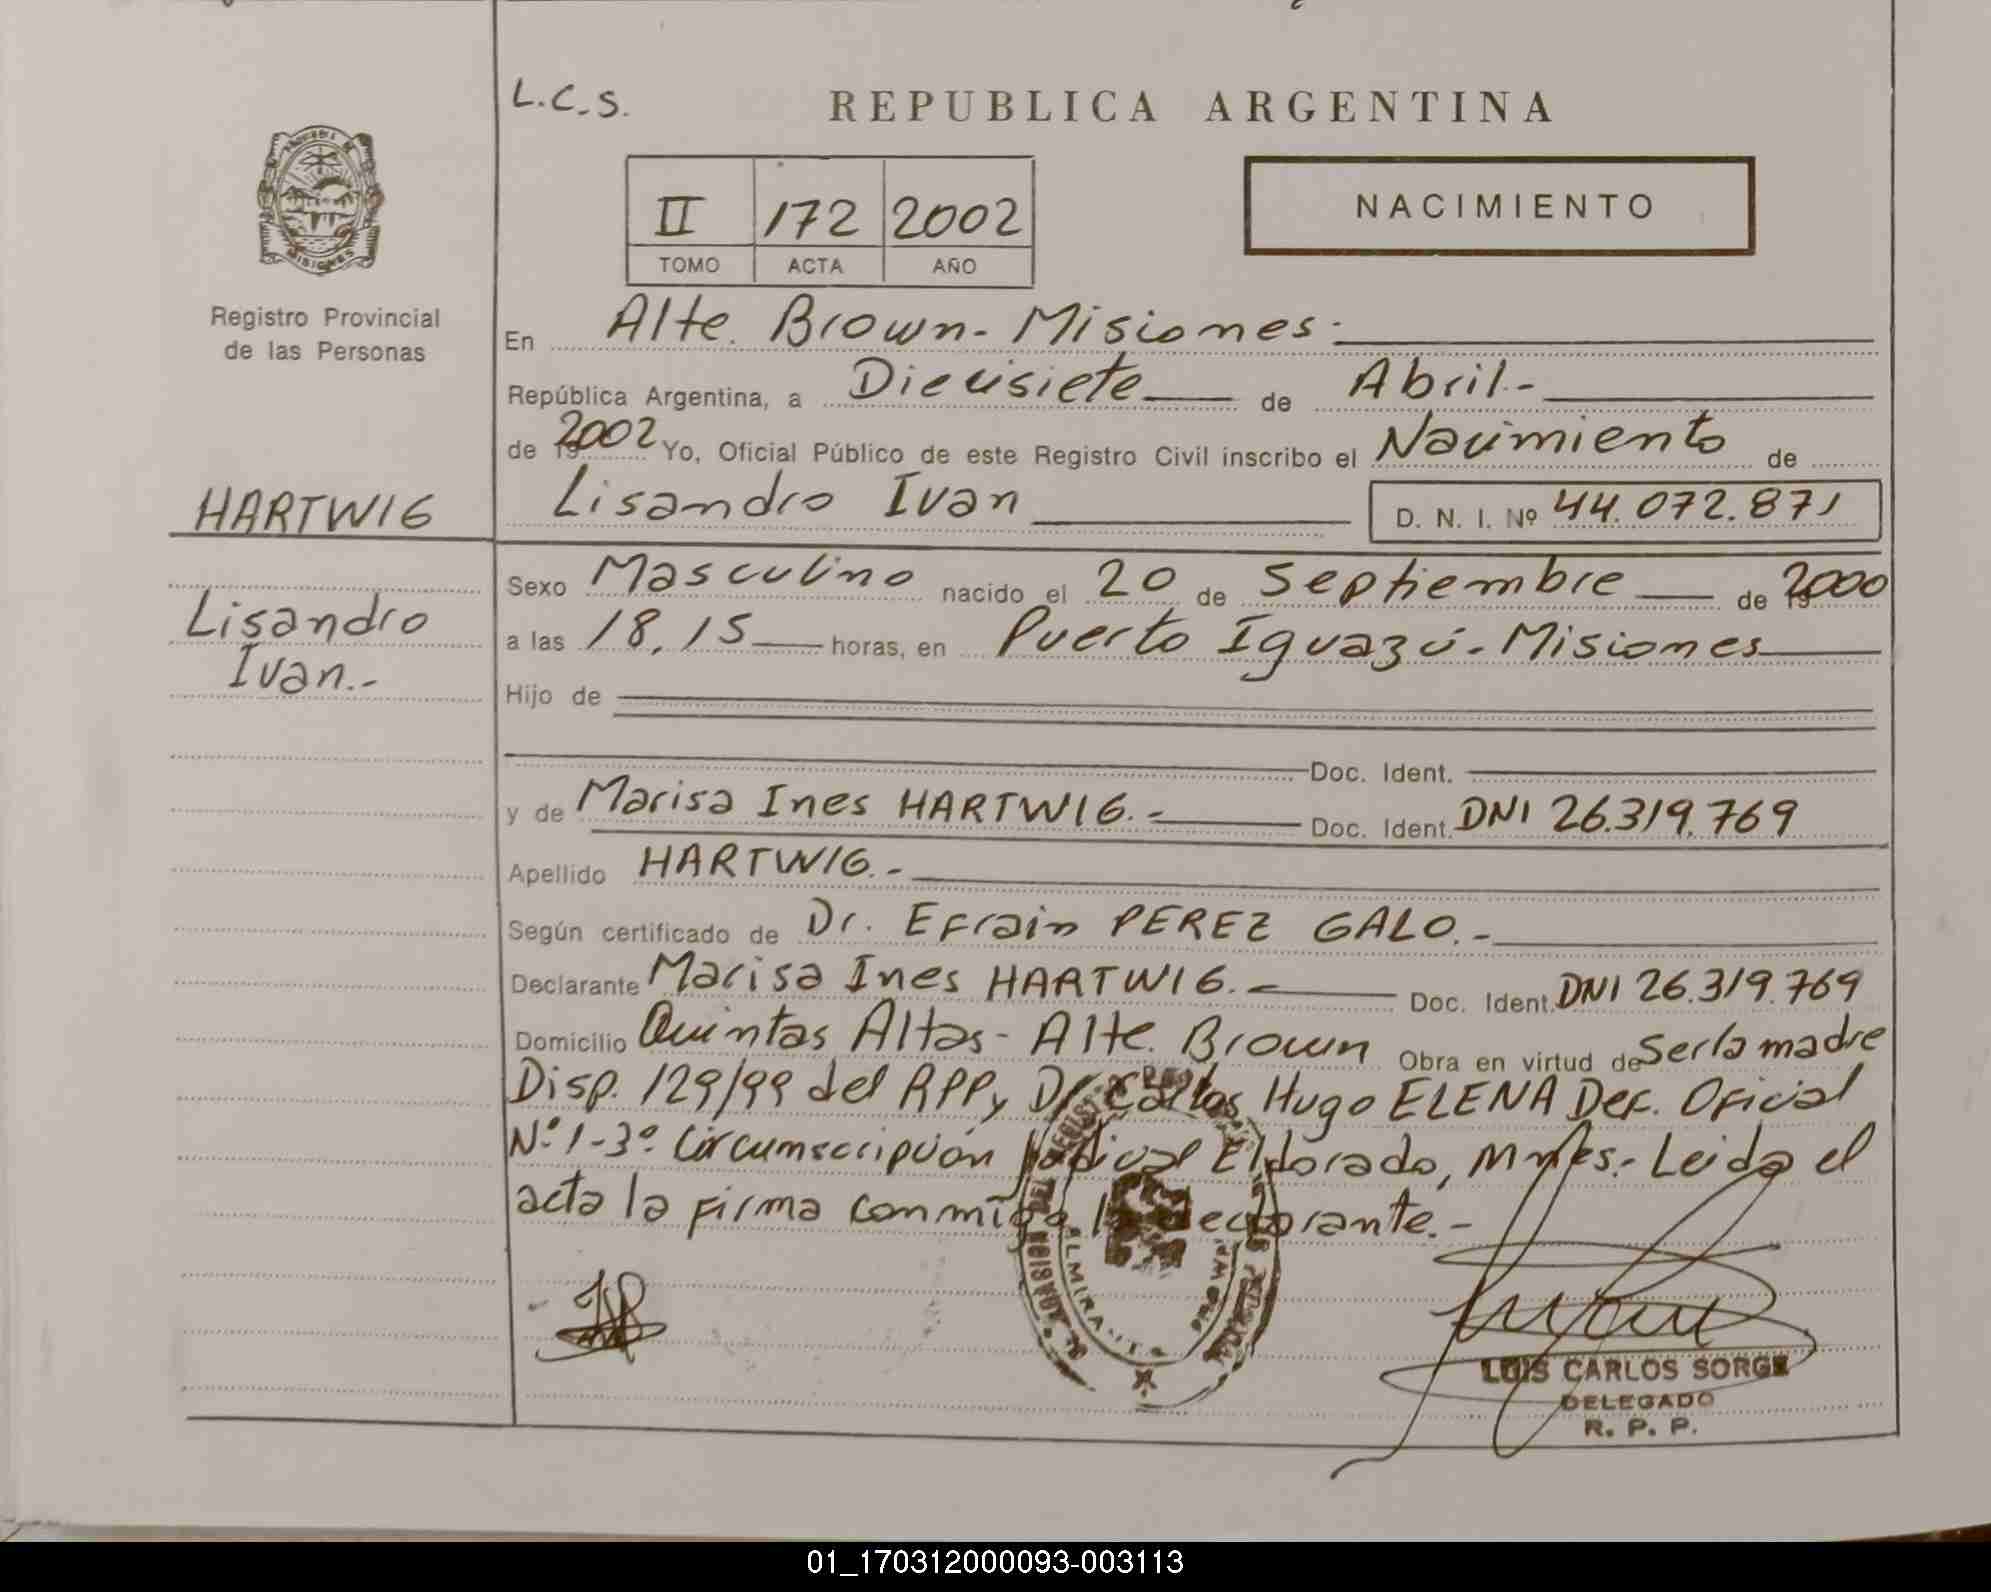 L.C.S.
REPUBLICA ARGENTINA
II 172 2002
TOMO ACTA AÑO
NACIMIENTO
MISIONES
Registro Provincial
de las Personas
HARTWIG
Lisandro
Ivan.-
En Alte. Brown - Misiones.
República Argentina, a Diecisiete de Abril.-
de 2002 Yo, Oficial Público de este Registro Civil inscribo el Nacimiento de
Lisandro Ivan D. N. I. Nº 44.072.871
Sexo Masculino nacido el 20 de Septiembre de 2000
a las 18,15 horas, en Puerto Iguazú - Misiones
Hijo de
Doc. Ident.
y de Marisa Ines HARTWIG.- Doc. Ident. DNI 26.319.769
Apellido HARTWIG.-
Según certificado de Dr. Efrain PEREZ GALO.-
Declarante Marisa Ines HARTWIG.- Doc. Ident. DNI 26.319.769
Domicilio Quintas Altas - Alte. Brown Obra en virtud de Ser la madre
Disp. 129/99 del RPP, Dr Carlos Hugo ELENA Def. Oficial
Nº 1 - 3º Circumscripción Judicial Eldorado, Mnes.- Leida el
acta la firma conmigo la declarante.-
ALMIRANTE BROWN
LUIS CARLOS SORGE
DELEGADO
R. P. P.
01_170312000093-003113